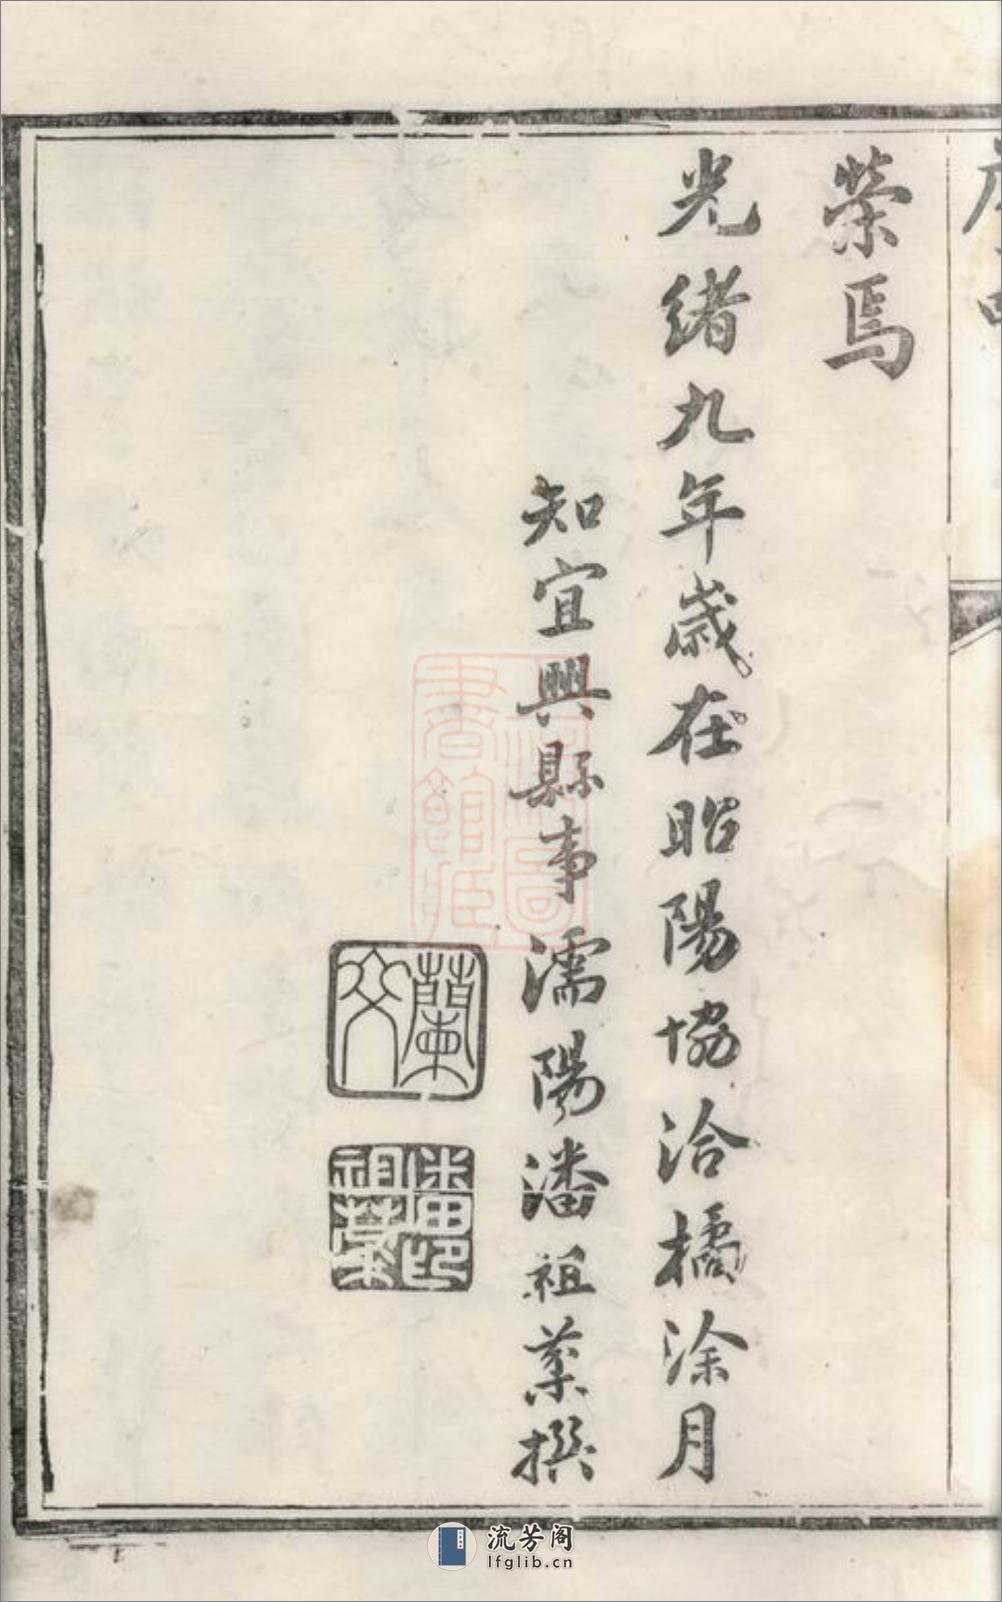 榮焉
光緒九年歲在昭陽協洽橘涂月
知宜興縣事濡陽潘祖撰
蘭文
潘印祖
圖
書館藏
流芳阁
lfglib.cn